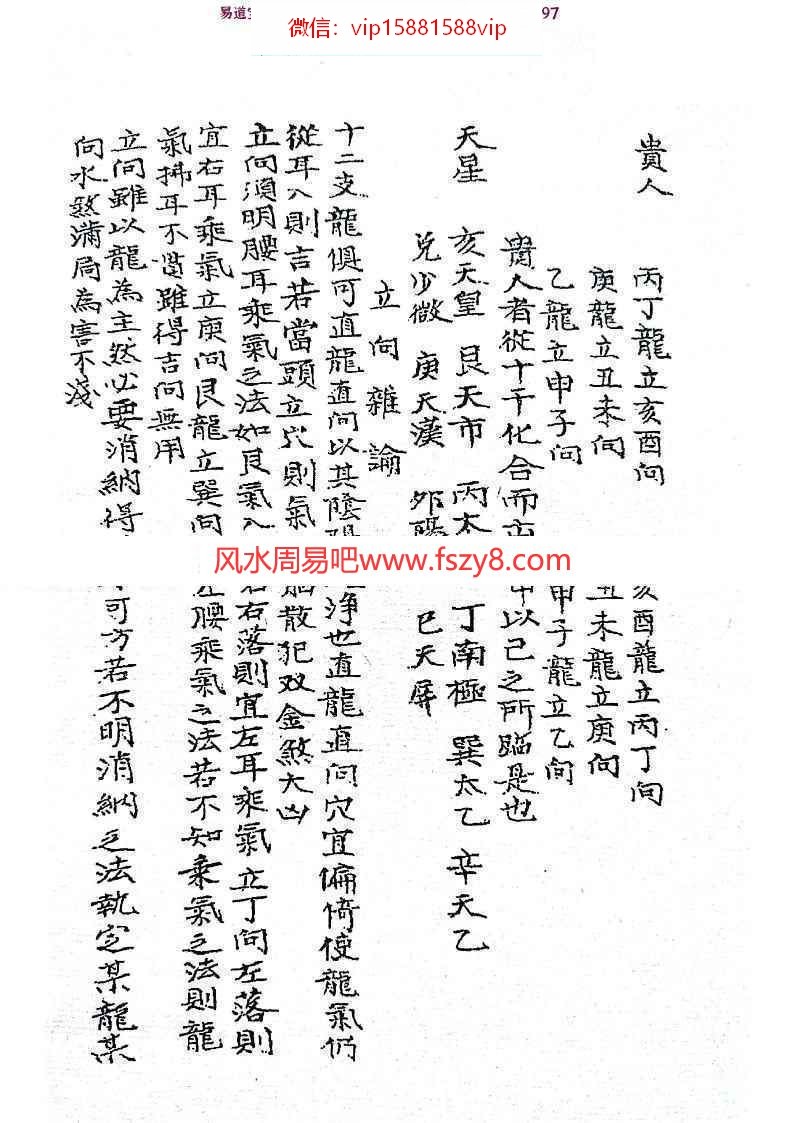 易道
微信：vip15881588vip
97
貴人 丙丁龍立亥酉向 亥酉龍立丙丁向
庚龍立丑未向 丑未龍立庚向
乙龍立申子向 申子龍立乙向
貴人者從十干化合而 中以己之所臨是也
天星 亥天皇 艮天市 丙太 丁南極 巽太乙 辛天乙
兌少微 庚天漢 巳天屏
立向雜論
十二支龍俱可直龍直向以其陰 淨也直龍直向穴宜偏倚使龍氣仍
從耳入則吉若當頭立穴則氣 腦散犯双金煞大凶
立向須明腰耳乘氣之法如艮氣入 右落則宜左耳乘氣立丁向左落則
宜右耳乘氣立庚向艮龍立巽向 左腰乘氣之法若不知乘氣之法則龍
氣拂耳不 雖得吉向無用
立向雖以龍為主然必要消納得 可方若不明消納之法執定某龍某
向水煞滿局為害不淺
风水周易吧www.fszy8.com